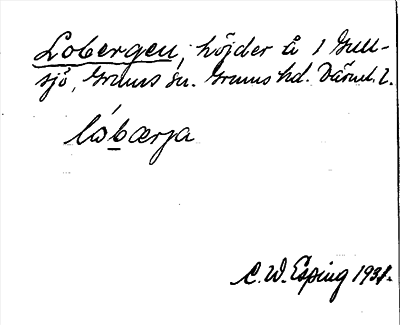 Lobergen, höjder å 1 Gull-
sjö, Grums sn. Grums hd. Värml. l.
lòbærja
C. W. Esping 1938.